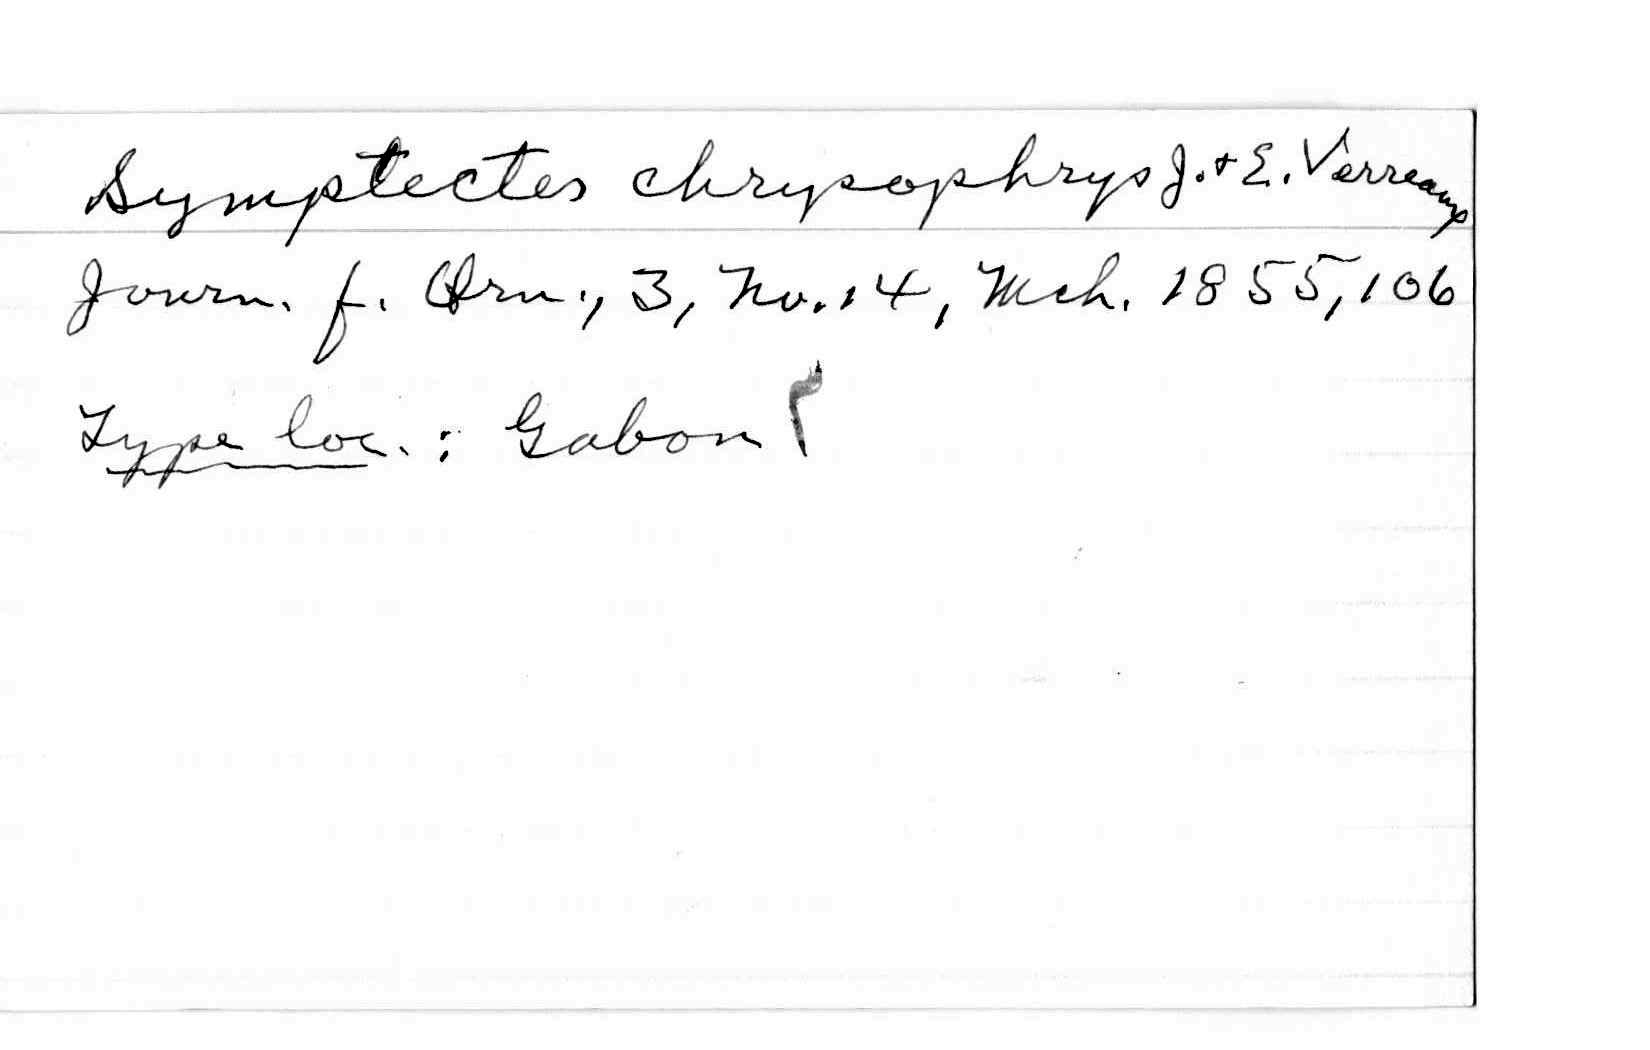 Symptectes chrysophrys J. + E. Verreaux
Journ. f. Orn., 3, No. 14, Mch. 1855, 106
Type loc. : Gabon